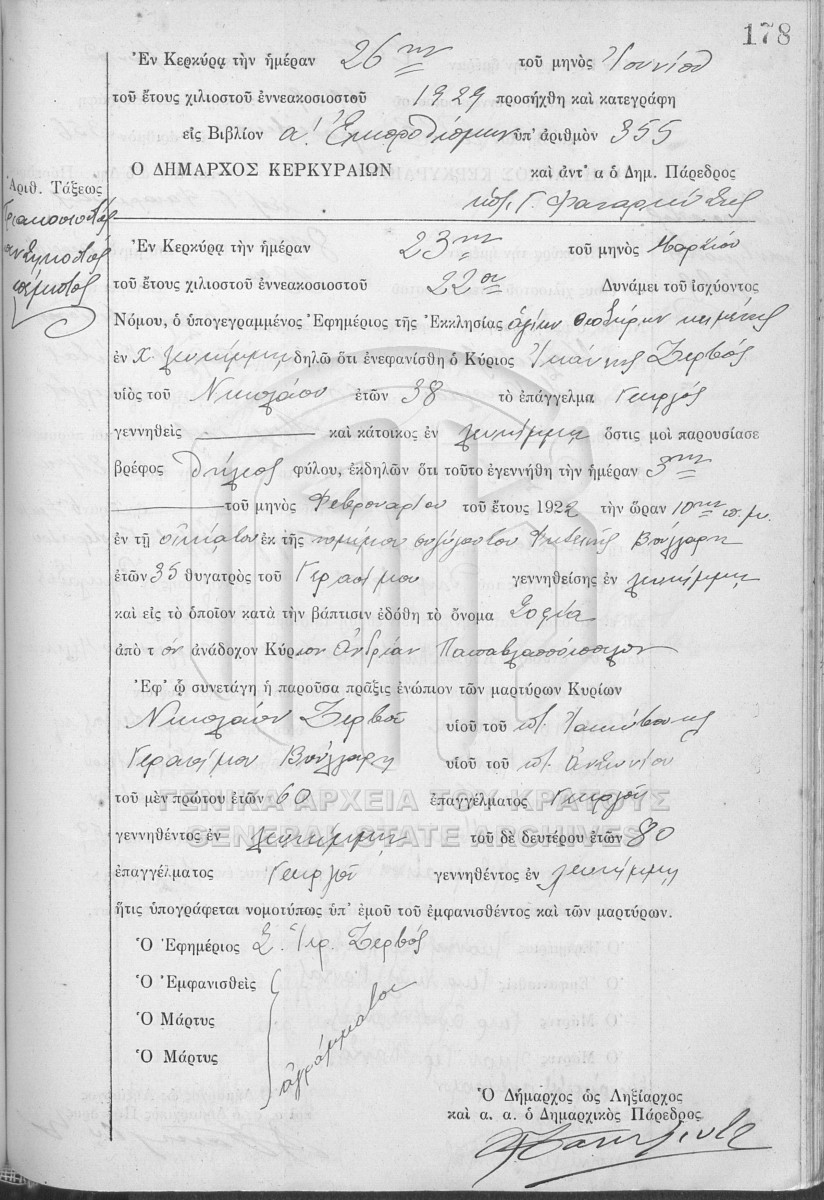 178
Ἐν Κερκύρᾳ τὴν ἡμέραν 26ην τοῦ μηνὸς Ἰουνίου
τοῦ ἔτους χιλιοστοῦ ἐννεακοσιοστοῦ 1929 προσήχθη καὶ κατεγράφη
εἰς Βιβλίον α' Ἐκπροθέσμων ὑπ' ἀριθμὸν 355
Ο ΔΗΜΑΡΧΟΣ ΚΕΡΚΥΡΑΙΩΝ καὶ ἀντ' α ὁ Δημ. Πάρεδρος
Ἀριθ. Τάξεως
Τριακοσιοστός
πεντηκοστός
πέμπτος
Ἐν Κερκύρᾳ τὴν ἡμέραν 23ην τοῦ μηνὸς Μαρτίου
τοῦ ἔτους χιλιοστοῦ ἐννεακοσιοστοῦ 22ου Δυνάμει τοῦ ἰσχύοντος
Νόμου, ὁ ὑπογεγραμμένος Ἐφημέριος τῆς Ἐκκλησίας ἁγίων Θεοδώρων κειμένης
ἐν Χ. Λευκίμμῃ δηλῶ ὅτι ἐνεφανίσθη ὁ Κύριος Ἰωάννης Ζερβός
υἱὸς τοῦ Νικολάου ἐτῶν 38 τὸ ἐπάγγελμα Γεωργός
γεννηθεὶς καὶ κάτοικος ἐν Λευκίμμῃ ὅστις μοὶ παρουσίασε
βρέφος θήλεος φύλου, ἐκδηλῶν ὅτι τοῦτο ἐγεννήθη τὴν ἡμέραν 3ην
τοῦ μηνὸς Φεβρουαρίου τοῦ ἔτους 1922 τὴν ὥραν 10ην π.μ.
ἐν τῇ οἰκίᾳ του ἐκ τῆς νομίμου συζύγου του Φωτεινῆς Βούλγαρη
ἐτῶν 35 θυγατρὸς τοῦ Γερασίμου γεννηθείσης ἐν Λευκίμμῃ
καὶ εἰς τὸ ὁποῖον κατὰ τὴν βάπτισιν ἐδόθη τὸ ὄνομα Σοφία
ἀπὸ τ ὸν ἀνάδοχον Κύριον Ἀνδρέαν Παπαβλασόπουλον
Ἐφ' ᾧ συνετάγη ἡ παροῦσα πρᾶξις ἐνώπιον τῶν μαρτύρων Κυρίων
Νικολάου Ζερβοῦ υἱοῦ τοῦ ποτ.
Γερασίμου Βούλγαρη υἱοῦ τοῦ ποτ. Ἀντωνίου
τοῦ μὲν πρώτου ἐτῶν 60 ἐπαγγέλματος Γεωργοῦ
ΓΕΝΙΚΑ ΑΡΧΕΙΑ ΤΟΥ ΚΡΑΤΟΥΣ
GENERAL STATE ARCHIVES
γεννηθέντος ἐν Λευκίμμῃ τοῦ δὲ δευτέρου ἐτῶν 80
ἐπαγγέλματος Γεωργοῦ γεννηθέντος ἐν Λευκίμμῃ
ἥτις ὑπογράφεται νομοτύπως ὑπ' ἐμοῦ τοῦ ἐμφανισθέντος καὶ τῶν μαρτύρων.
Ὁ Ἐφημέριος Σ. Ἱερ. Ζερβός
Ὁ Ἐμφανισθεὶς
Ὁ Μάρτυς
Ὁ Μάρτυς
ἀγράμματοι
Ὁ Δήμαρχος ὡς Ληξίαρχος
καὶ α. α. ὁ Δημαρχικὸς Πάρεδρος